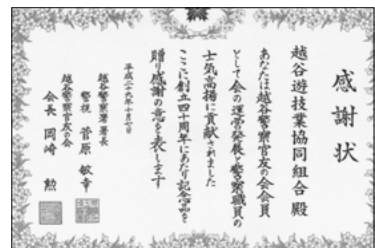 感謝状
越谷遊技業協同組合 殿
あなたは越谷警察官友の会会員
として会の運営発展と警察職員の
士気高揚に貢献されました
ここに創立四十周年にあたり記念品を
贈り感謝の意を表します
平成二十九年十月七日
越谷警察署署長
警視 菅原 敏幸
越谷警察官友の会
会長 岡崎 勲